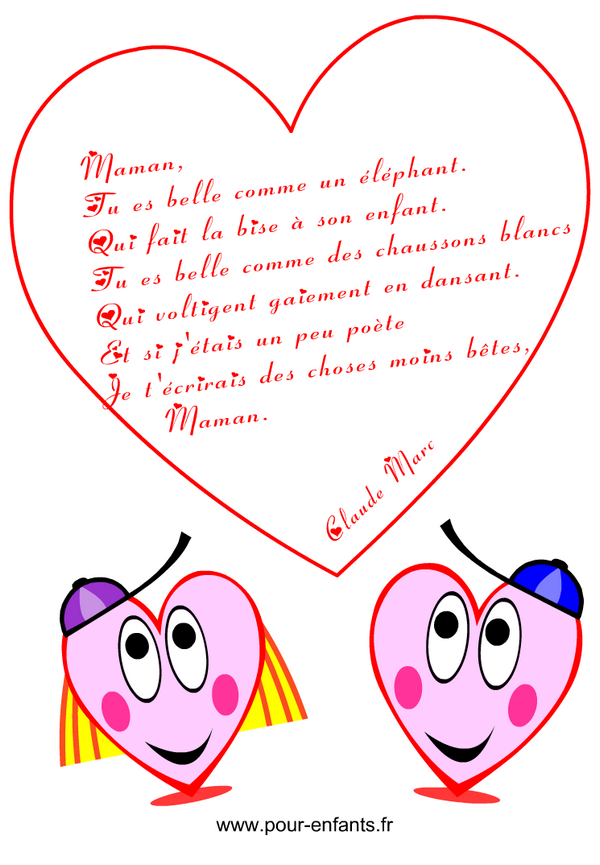 Maman,
Tu es belle comme un éléphant.
Qui fait la bise à son enfant.
Tu es belle comme des chaussons blancs
Qui voltigent gaiement en dansant.
Et si j'étais un peu poète
Je t'écrirais des choses moins bêtes,
Maman.
Claude Marc
www.pour-enfants.fr